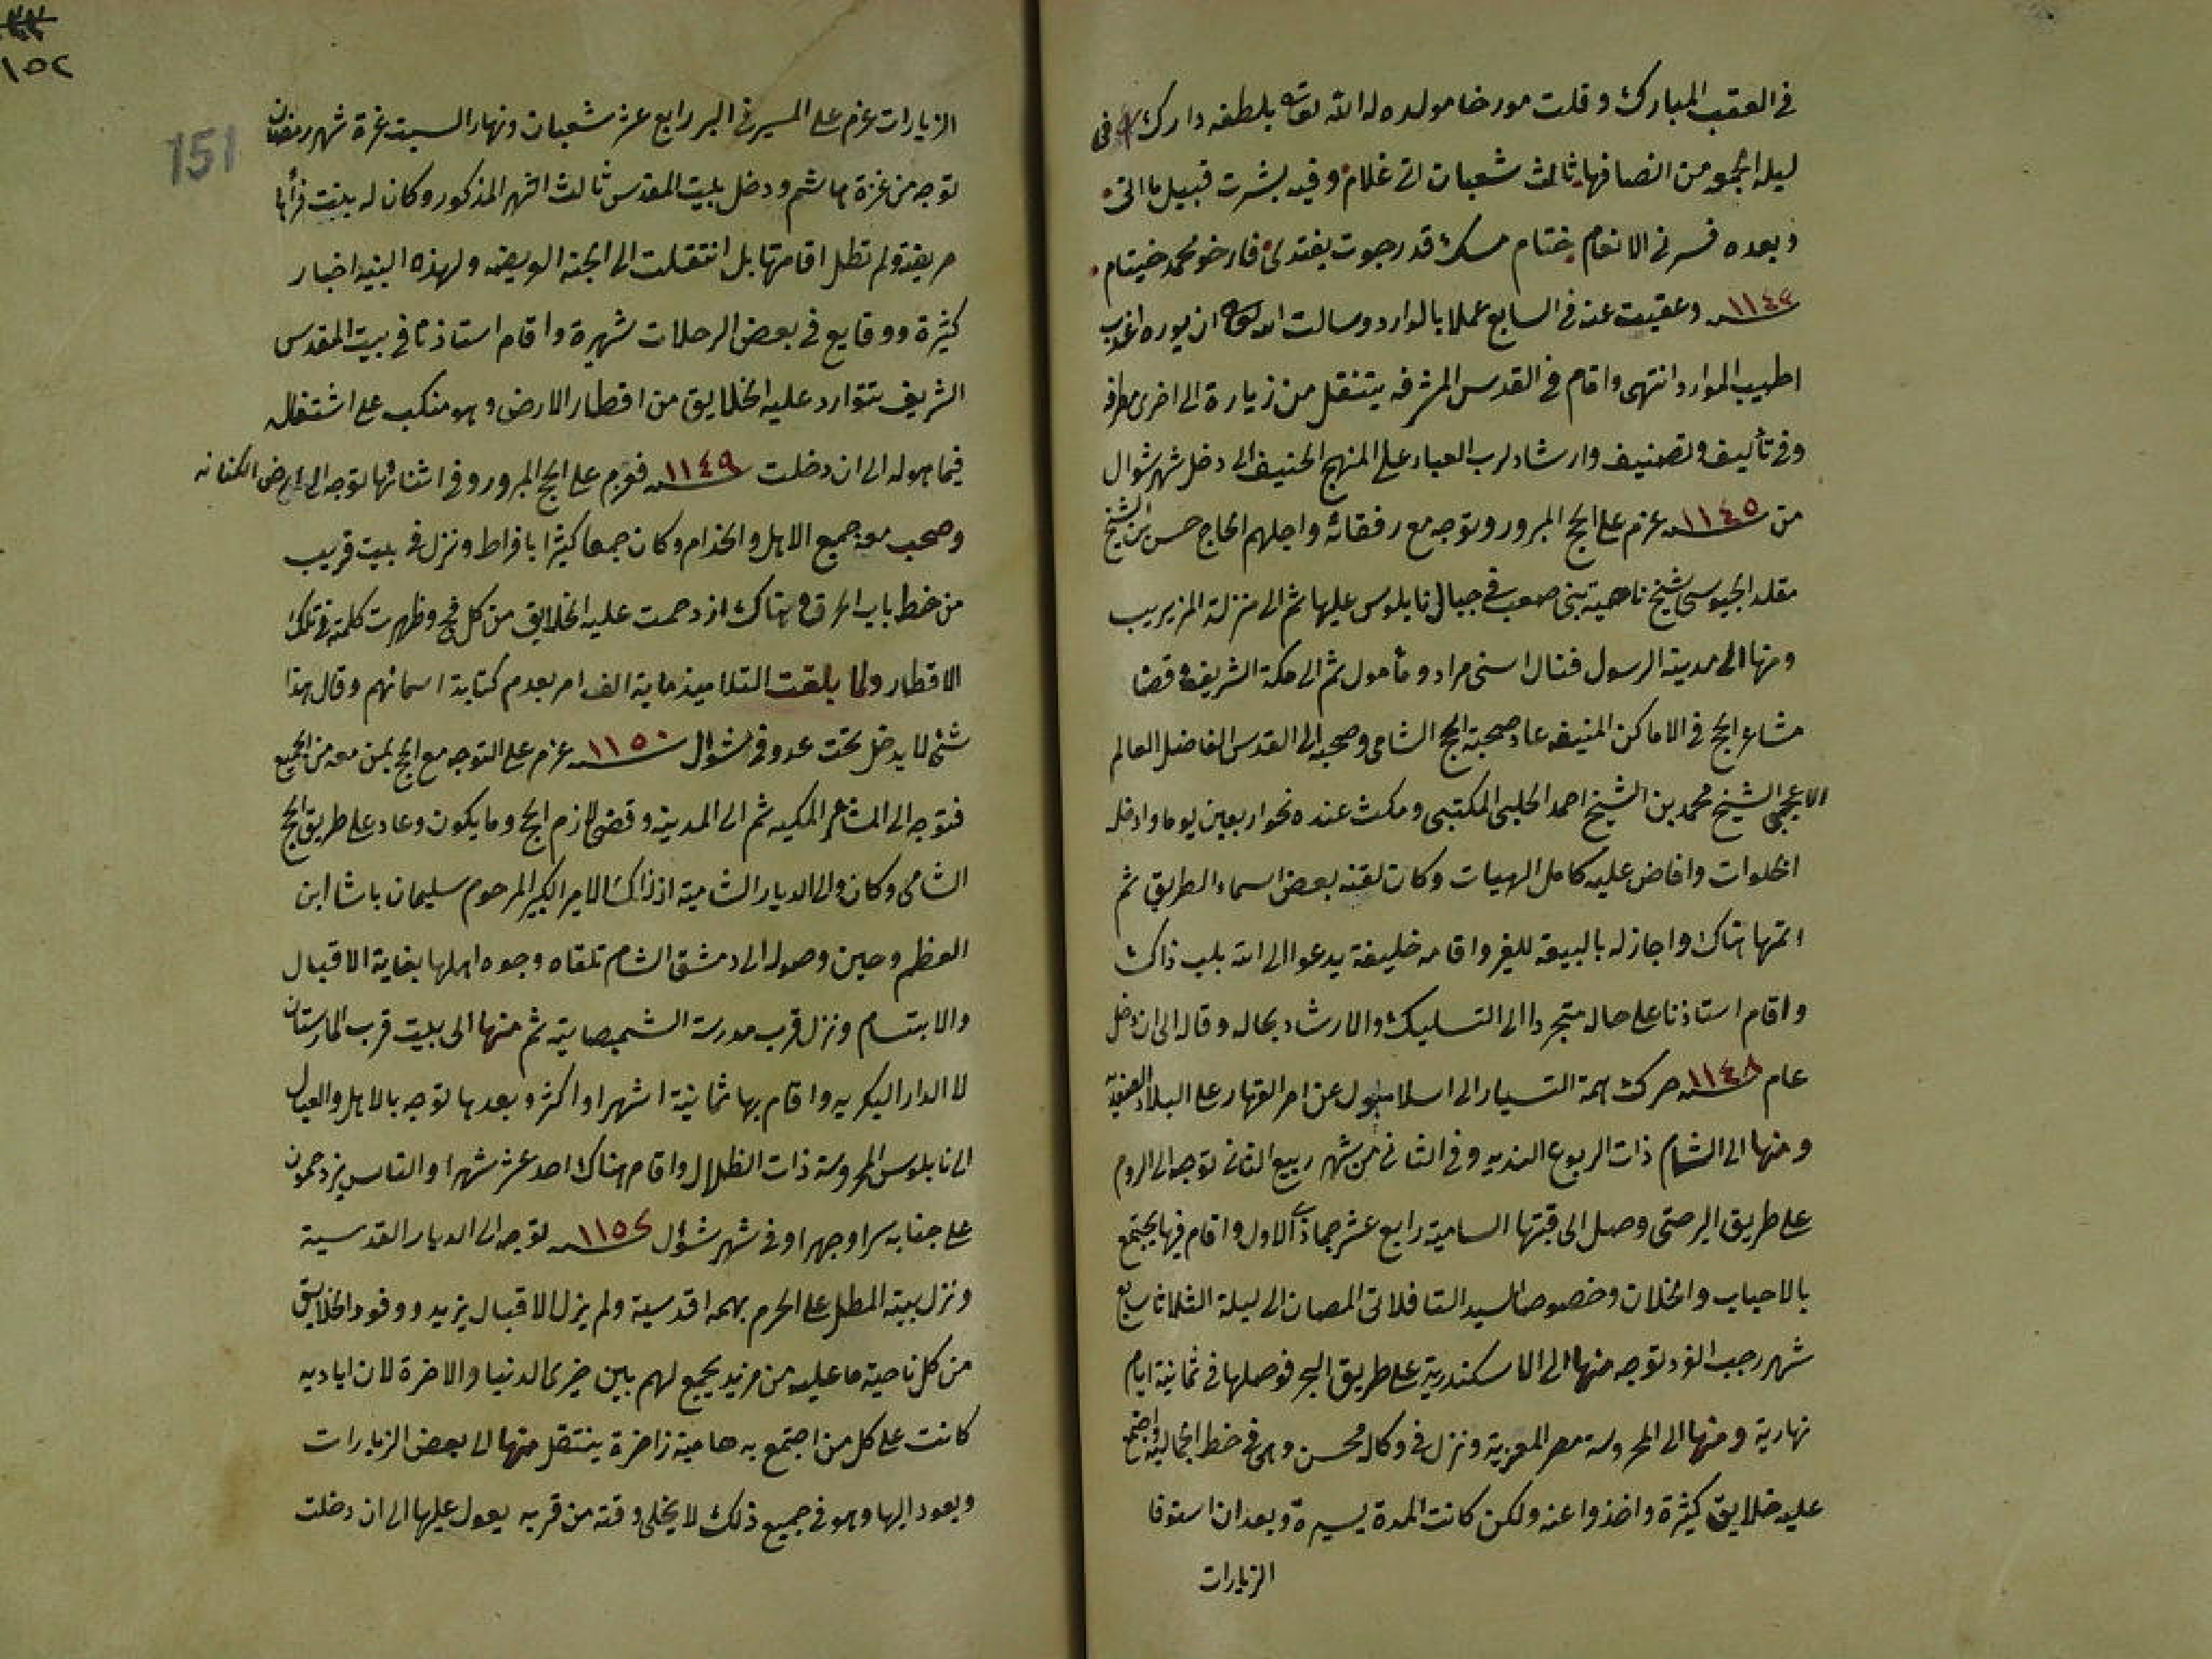 في العقب المبارك وقلت مورخا مولده له الله تعالى بلطفه دارك في
ليلة الجمعه من انصافها ثالث شعبان اتى غلام وفيه بشرت قبيل ما اتى
وبعده فسرني الانعام ختام مسك قد رجوت يغتدى فارخو محمد ختام
١١٤٢ وعقيت عنه في السابع عملا بالوارد وسالت الله تعالى ان يورده اعذب
اطيب الموارد انتهى واقام في القدس المشرفه يتنقل من زيارة الى اخرى
وفي تأليف وتصنيف وارشاد لرب العباد على المنهج الحنيف الى دخل شهر شوال
من سنه ١١٤٥ عزم على الحج المبرور وتوجه مع رفقائه واجلهم الحاج حسن ابن الشيخ
مقلد الجيوسي شيخ ناحية بني صعب في جبال نابلوس عليها ثم الى منزلة المزيريب
ومنها الى مدينة الرسول فنال اسنى مراد ومأمول ثم الى مكة الشريفة قضا
مشاعر الحج في الاماكن المنيفه عاد صحبة الحج الشامي وصحبه الى القدس الفاضل العالم
الشيخ محمد بن الشيخ احمد الحلبي المكتبي ومكث عنده نحو اربعين يوما وادخله
الخلوات وافاض عليه كامل الهبات وكان لقنه بعض اسماء الطريق ثم
اتمها هناك واجاز له بالبيعة للغير واقامه خليفة يدعو الى الله بلب ذاك
واقام استاذنا على حاله متجردا الى التسليك والارشاد بحاله وقاله الى ان دخل
عام سنه ١١٤٨ حرك همة التسيار الى اسلامبول عن امر القهار على البلاد الصفدية
ومنها الى الشام ذات الربوع النديه وفي الثاني من شهر ربيع الثاني توجه الى الروم
على طريق البر حتى وصل الى قبتها السامية رابع عشر جمادى الاول واقام فيها يجتمع
بالاحباب والخلان وخصوصا السيد التافلاتي المصان الى ليلة الثلاثا سابع
شهر رجب الفرد توجه منها الى الاسكندرية على طريق البحر فوصلها في ثمانية ايام
نهارية ومنها الى المحروسة مصر المعزية ونزل في وكالة محسن وهي في خط الجمالية واجتمع
عليه خلايق كثيرة واخذوا عنه ولكن كانت المدة يسيرة وبعد ان استوفا
الزيارات
١٥٢
151
الزيارات عزم على المسير في البر رابع عشر شعبان ونهار السبت غرة شهر رمضان
توجه من غزة هاشم ودخل بيت المقدس ثالث الشهر المذكور وكان له بنت فرأها
مريضة ولم تطل اقامتها بل انتقلت الى الجنة الويضه ولهذه البنيه اخبار
كثيرة ووقايع في بعض الرحلات شهيرة واقام استاذنا في بيت المقدس
الشريف تتوارد عليه الخلايق من اقطار الارض وهو منكب على اشتغاله
فيما هو له الى ان دخلت سنه ١١٤٩ فعزم على الحج المبرور وفي اثنائها توجه الى ارض الكنانه
وصحب معه جميع الاهل والخدام وكان جمعا كثيرا بافراط ونزل في بيت قريب
من خط باب الخرق وهناك ازدحمت عليه الخلايق من كل فج وظهرت كلمته في تلك
الاقطار ولما بلغت التلاميذ ماية الف امر بعدم كتابة اسمائهم وقال هذا
شئ لا يدخل تحت عد وفي شوال سنه ١١٥٠ عزم على التوجه مع الحج بمن معه من الجميع
فتوجه الى المشاعر المكيه ثم الى المدينة وقضى لازم الحج وما يكون وعاد على طريق الحج
الشامي وكان والي الديار الشامية اذ ذاك الامير الكبير المرحوم سليمان باشا ابن
العظم وحين وصوله الى دمشق الشام تلقاه وجوه اهلها بغاية الاقبال
والابتسام ونزل قرب مدرسة الشميصاتية ثم منها الى بيت قرب المارستان
لا الدار البكريه واقام بها ثمانية اشهر او اكثر وبعدها توجه بالاهل والعيال
الى نابلوس المحروسة ذات الظلال واقام هناك احد عشر شهرا والناس يزدحمون
على جنابه سرا وجهرا وفي شهر شوال سنه ١١٥٢ توجه الى الديار القدسية
ونزل بيته المطل على الحرم بهمه اقدسية ولم يزل الاقبال يزيد ووفود الخلايق
من كل ناحية ما عليه من مزيد يجمع لهم بين خيري الدنيا والاخرة لان اياديه
كانت على كل من اجتمع به هامية زاخرة ينتقل منها الى بعض الزيارات
ويعود اليها وهو في جميع ذلك لا يخلي وقته من قربه يعول عليها الى ان دخلت